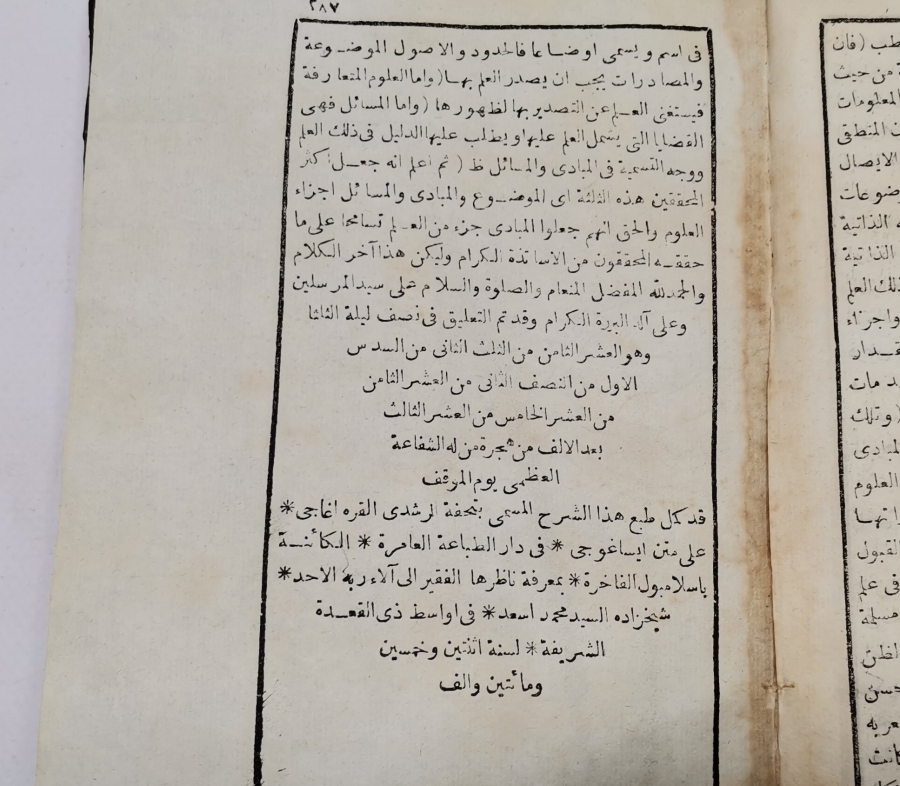 ٢٨٧
فى اسم ويسمى اوضاعا فالحدود والاصول الموضوعة
والمصادرات يجب ان يصدر العلم بها (واما العلوم المتعارفة
فيستغنى العلم عن التصدير بها لظهورها (واما المسائل فهى
القضايا التى يشمل العلم عليها ويطلب عليها الدليل فى ذلك العلم
ووجه التسمية فى المبادى والمسائل ظ (ثم اعلم انه جعل اكثر
المحققين هذه الثلثة اى الموضوع والمبادى والمسائل اجزاء
العلوم والحق انهم جعلوا المبادى جزء من العلم تسامحا على ما
حققه المحققون من الاساتذة الكرام وليكن هذا آخر الكلام
والحمد لله المفضل المنعام والصلوة والسلام على سيد المرسلين
وعلى آله البررة الكرام وقدتم التعليق فى نصف ليلة الثلثا
وهو العشر الثامن من الثلث الثانى من السدس
الاول من النصف الثانى من العشر الثامن
من العشر الخامس من العشر الثالث
بعد الالف من هجرة من له الشفاعة
العظمى يوم الموقف
قد كمل طبع هذا الشرح المسمى بتحفة الرشدى القره اغاجى *
على متن ايساغوجى * فى دار الطباعة العامرة * الكائنة
باسلامبول الفاخرة * بمعرفة ناظرها الفقير الى آلاء ربه الاحد *
شيخزاده السيد محمد اسعد * فى اواسط ذى القعدة
الشريفة * لسنة اثنتين وخمسين
ومائتين والف
طب (فان
من حيث
المعلومات
المنطقى
الايصال
ضوعات
الذاتية
الذاتية
ذلك العلم
واجزاء
مقدار
دمات
وتلك
المبادى
العلوم
القبول
فى علم
مسلمة
الظن